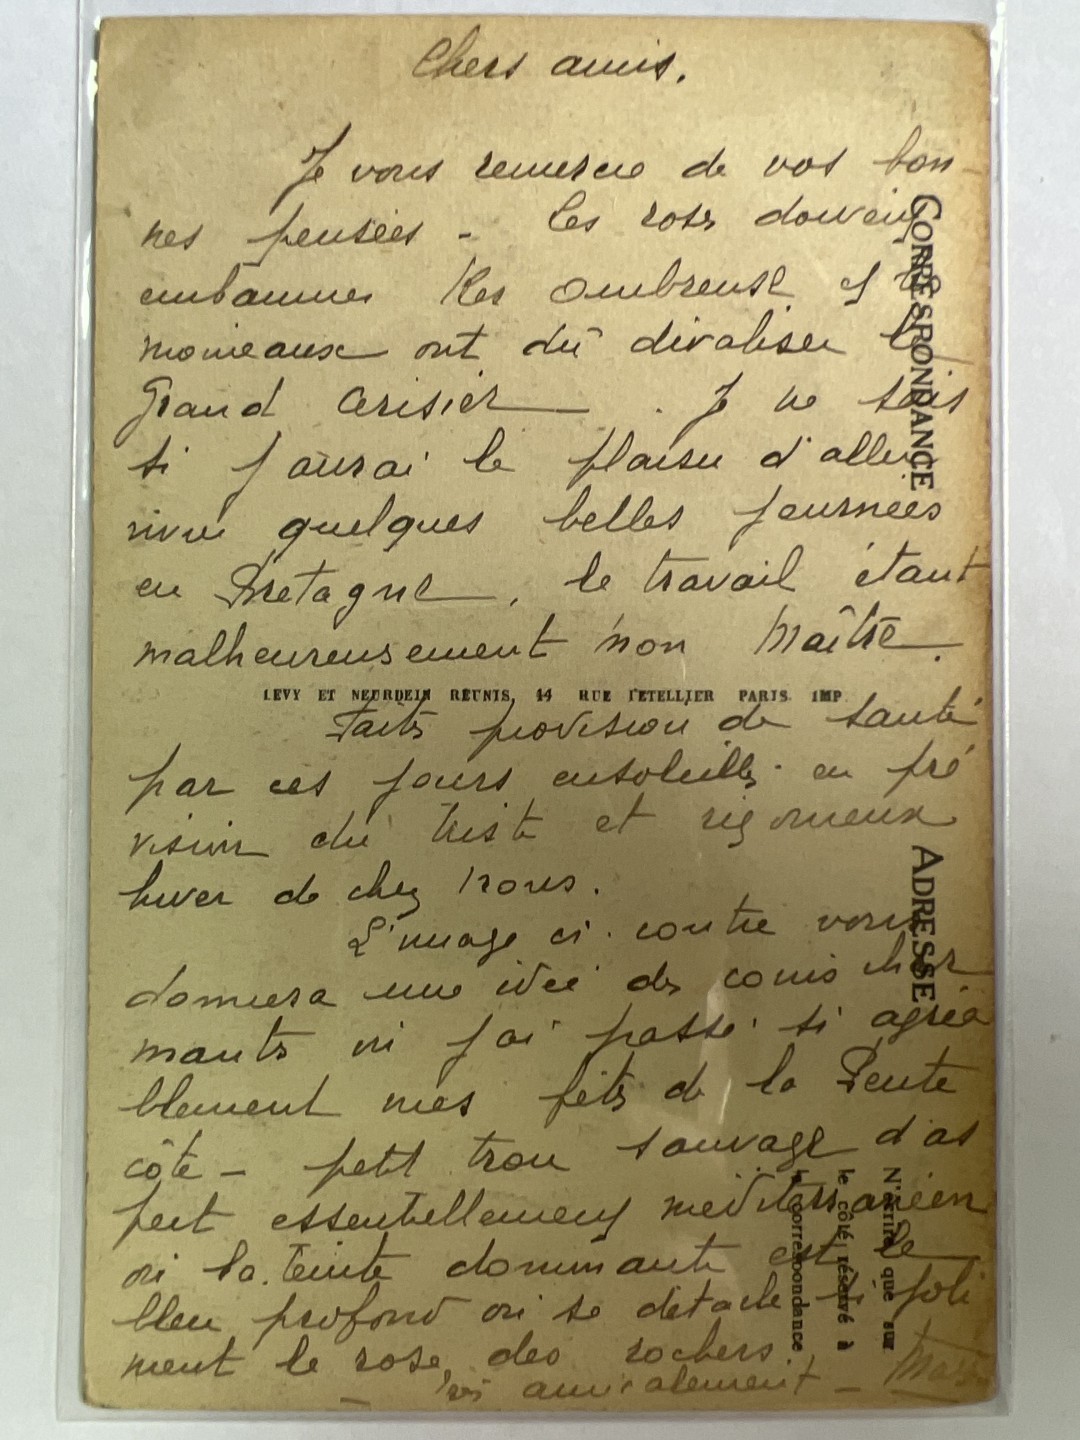 Chers amis.
Je vous remercie de vos bon-
nes pensées - Les roses doivent
embaumer Ker Ombreuse et les
moineaux ont dû dévaliser le
Grand Cerisier - . Je ne sais
si j'aurai le plaisir d'aller
vivre quelques belles journées
en Bretagne, le travail étant
malheureusement mon Maître.
LEVY ET NEURDEIN REUNIS, 44 RUE LETELLIER PARIS IMP
Faites provision de santé
par ces jours ensoleillés en pré
vision du triste et rigoureux
hiver de chez nous.
L'image ci-contre vous
donnera une idée des coins char
mants où j'ai passé si agréa
blement mes fêtes de la Pente
côte - petit trou sauvage d'as
pect essentiellement méditerranéen
où la teinte dominante est le
bleu profond où se détache si joli
ment le rose des rochers.
Très amicalement -
CORRESPONDANCE
ADRESSE
N'écrire que sur
le côté réservé à
la correspondance